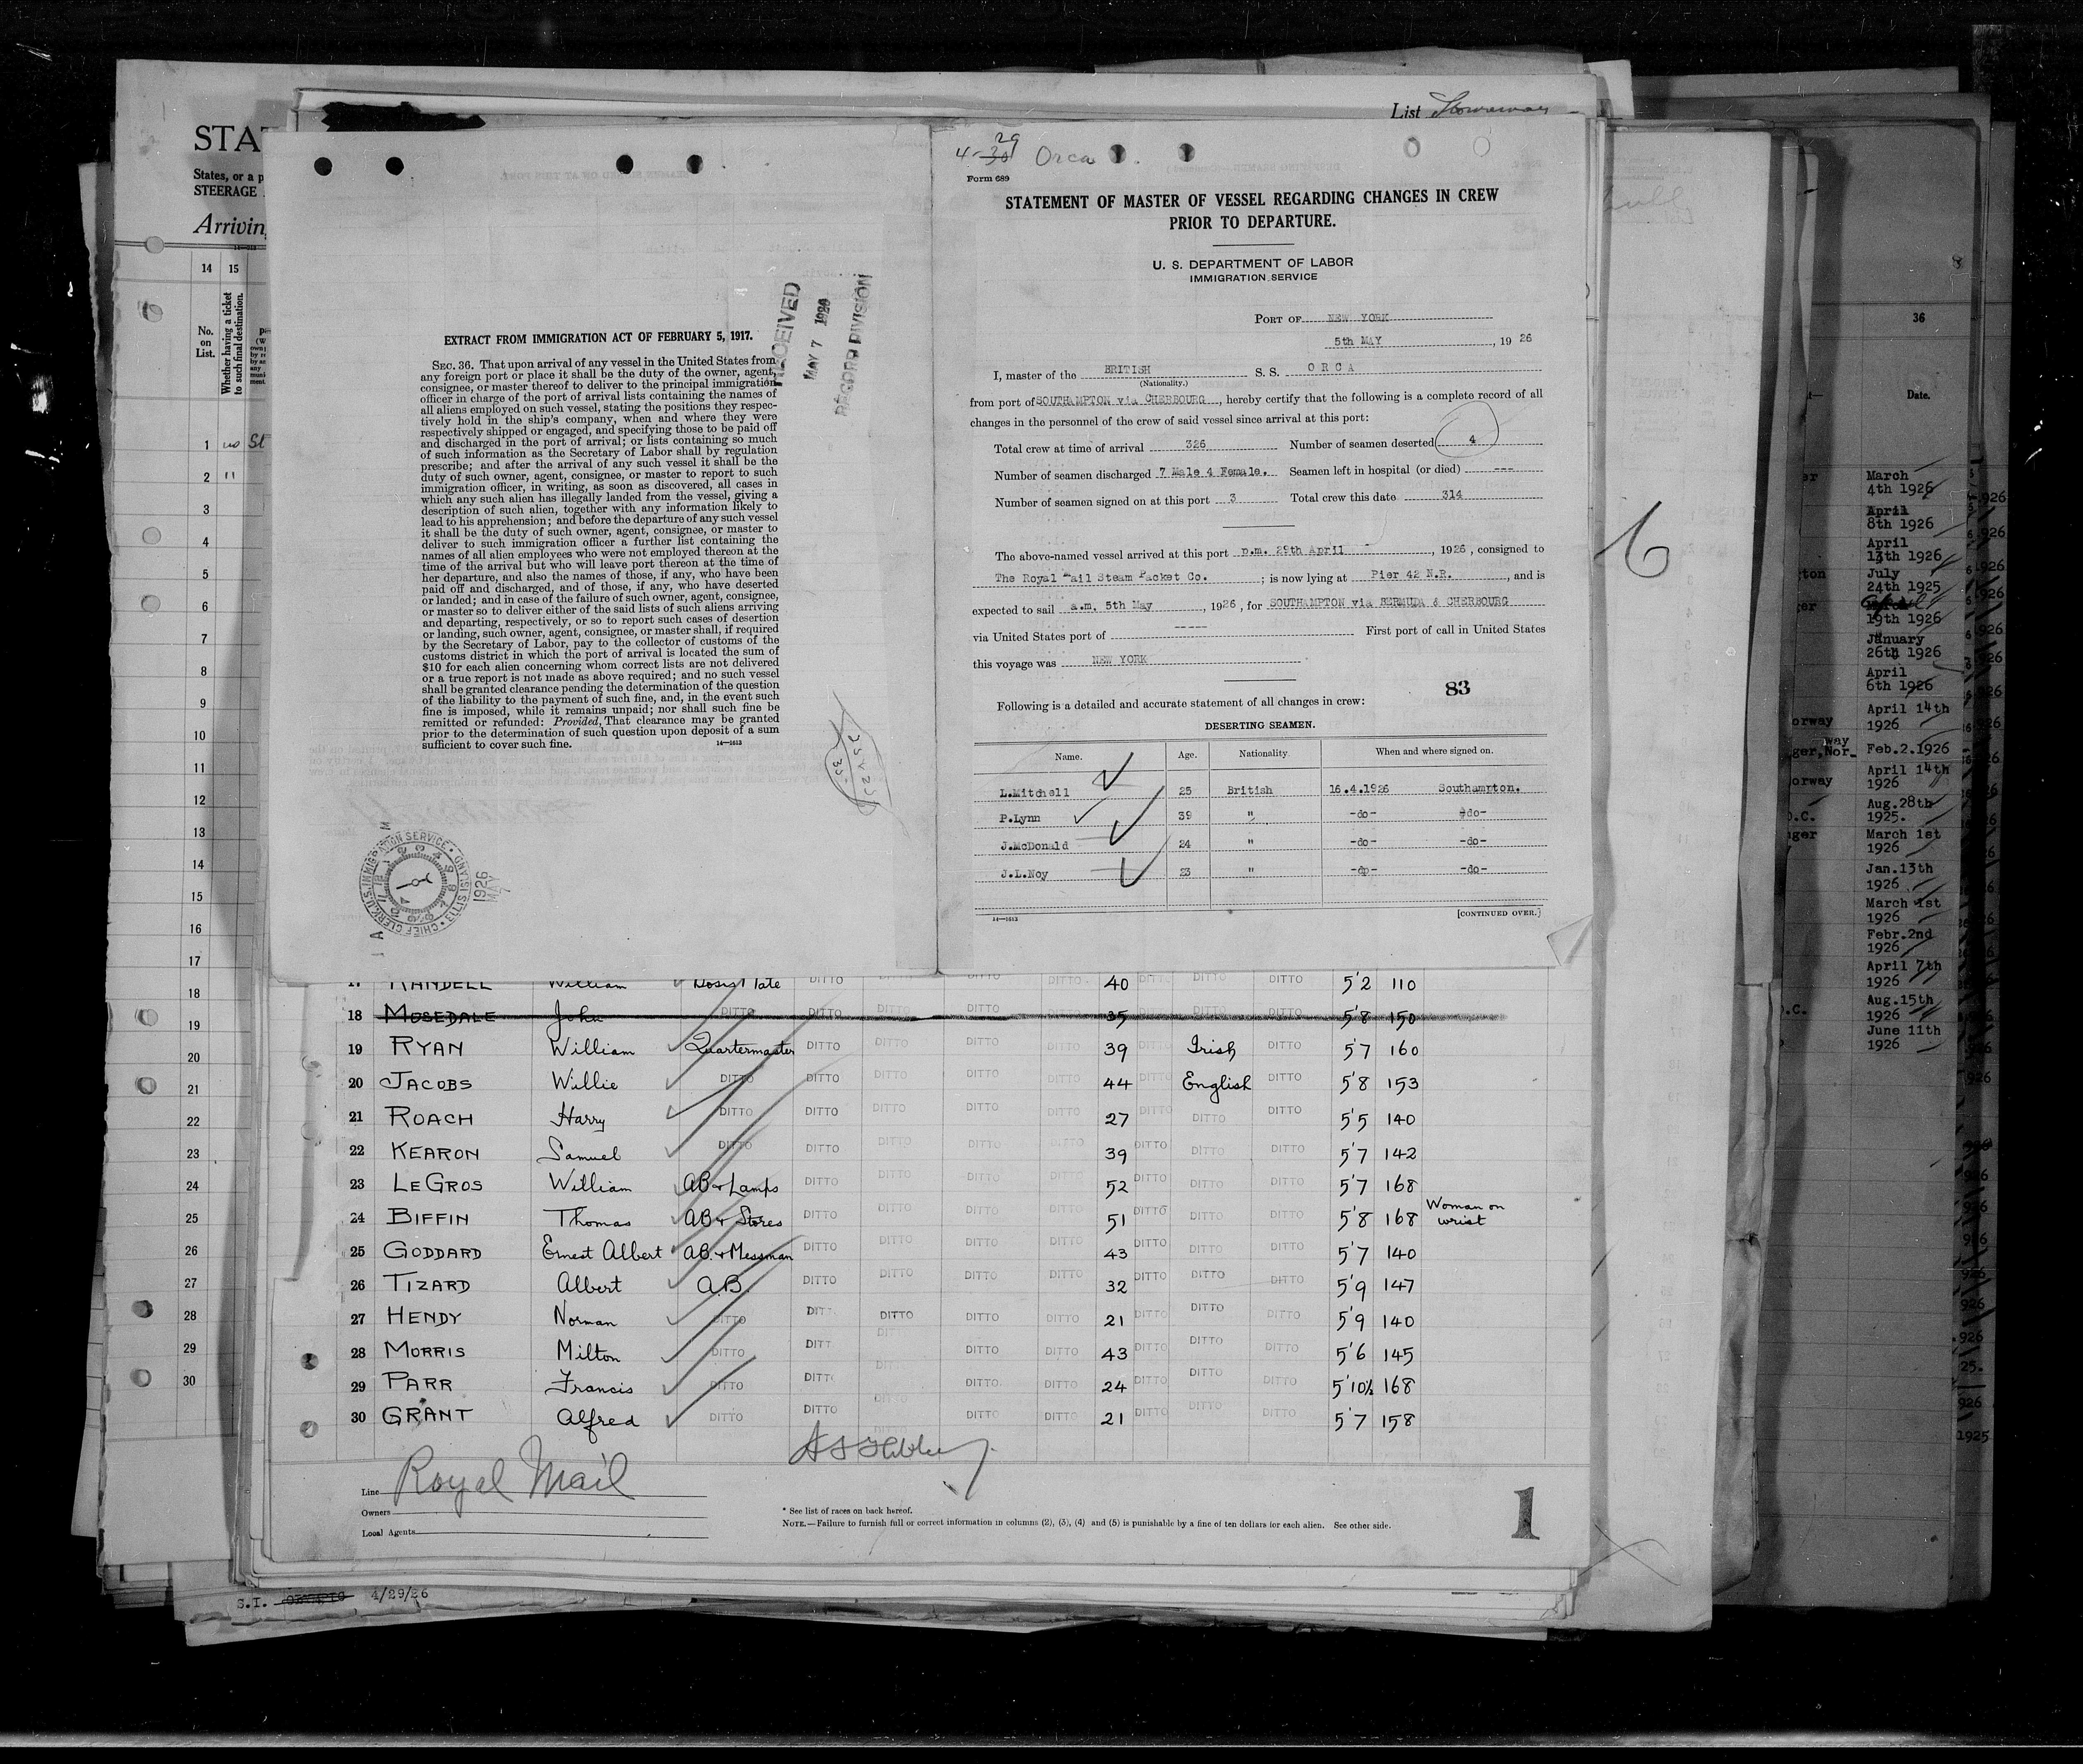 STAT
States, or a p
STEERAGE
Arriving
14 15
No. on List.
Whether having a ticket to such final destination.
1 no St
2 "
3
4
5
6
7
8
9
10
11
12
13
14
15
16
17
18
19
20
21
22
23
24
25
26
27
28
29
30
S.I. 4/29/26
List
EXTRACT FROM IMMIGRATION ACT OF FEBRUARY 5, 1917.
SEC. 36. That upon arrival of any vessel in the United States from
any foreign port or place it shall be the duty of the owner, agent,
consignee, or master thereof to deliver to the principal immigration
officer in charge of the port of arrival lists containing the names of
all aliens employed on such vessel, stating the positions they respec-
tively hold in the ship's company, when and where they were
respectively shipped or engaged, and specifying those to be paid off
and discharged in the port of arrival; or lists containing so much
of such information as the Secretary of Labor shall by regulation
prescribe; and after the arrival of any such vessel it shall be the
duty of such owner, agent, consignee, or master to report to such
immigration officer, in writing, as soon as discovered, all cases in
which any such alien has illegally landed from the vessel, giving a
description of such alien, together with any information likely to
lead to his apprehension; and before the departure of any such vessel
it shall be the duty of such owner, agent, consignee, or master to
deliver to such immigration officer a further list containing the
names of all alien employees who were not employed thereon at the
time of the arrival but who will leave port thereon at the time of
her departure, and also the names of those, if any, who have been
paid off and discharged, and of those, if any, who have deserted
or landed; and in case of the failure of such owner, agent, consignee,
or master so to deliver either of the said lists of such aliens arriving
and departing, respectively, or so to report such cases of desertion
or landing, such owner, agent, consignee, or master shall, if required
by the Secretary of Labor, pay to the collector of customs of the
customs district in which the port of arrival is located the sum of
$10 for each alien concerning whom correct lists are not delivered
or a true report is not made as above required; and no such vessel
shall be granted clearance pending the determination of the question
of the liability to the payment of such fine, and, in the event such
fine is imposed, while it remains unpaid; nor shall such fine be
remitted or refunded: Provided, That clearance may be granted
prior to the determination of such question upon deposit of a sum
sufficient to cover such fine.
14—1613
RECEIVED
MAY 7 1926
RECORD DIVISION
CHIEF CLERK, U.S. IMMIGRATION SERVICE · ELLIS ISLAND
1926 MAY 7
4-30 29 Orca
Form 689
STATEMENT OF MASTER OF VESSEL REGARDING CHANGES IN CREW
PRIOR TO DEPARTURE.
U. S. DEPARTMENT OF LABOR
IMMIGRATION SERVICE
PORT OF NEW YORK
5th MAY, 1926
I, master of the BRITISH S. S. ORCA
(Nationality.)
from port of SOUTHAMPTON via CHERBOURG, hereby certify that the following is a complete record of all
changes in the personnel of the crew of said vessel since arrival at this port:
Total crew at time of arrival 326 Number of seamen deserted 4
Number of seamen discharged 7 Male 4 Female. Seamen left in hospital (or died) ---
Number of seamen signed on at this port 3 Total crew this date 314
The above-named vessel arrived at this port p.m. 29th April, 1926, consigned to
The Royal Mail Steam Packet Co.; is now lying at Pier 42 N.R., and is
expected to sail a.m. 5th May, 1926, for SOUTHAMPTON via BERMUDA & CHERBOURG
via United States port of ----- First port of call in United States
this voyage was NEW YORK
83
Following is a detailed and accurate statement of all changes in crew:
DESERTING SEAMEN.
Name. Age. Nationality When and where signed on.
L.Mitchell 25 British 16.4.1926 Southampton.
P.Lynn 39 " -do- -do-
J.McDonald 24 " -do- -do-
J.L.Noy 23 " -do- -do-
14—1613 [CONTINUED OVER.]
17 RANDELL William Bosns Mate DITTO 40 DITTO DITTO DITTO 5'2 110
18 MOSEDALE John DITTO DITTO DITTO DITTO DITTO 35 DITTO DITTO DITTO 5'8 150
19 RYAN William Quartermaster DITTO DITTO DITTO DITTO 39 DITTO Irish DITTO 5'7 160
20 JACOBS Willie DITTO DITTO DITTO DITTO DITTO 44 DITTO English DITTO 5'8 153
21 ROACH Harry DITTO DITTO DITTO DITTO DITTO 27 DITTO DITTO DITTO 5'5 140
22 KEARON Samuel DITTO DITTO DITTO DITTO DITTO 39 DITTO DITTO DITTO 5'7 142
23 LEGROS William AB & Lamps DITTO DITTO DITTO DITTO 52 DITTO DITTO DITTO 5'7 168
24 BIFFIN Thomas AB & Stores DITTO DITTO DITTO DITTO 51 DITTO DITTO DITTO 5'8 168 Woman on wrist
25 GODDARD Ernest Albert AB & Messman DITTO DITTO DITTO DITTO 43 DITTO DITTO DITTO 5'7 140
26 TIZARD Albert A.B. DITTO DITTO DITTO DITTO 32 DITTO DITTO DITTO 5'9 147
27 HENDY Norman DITTO DITTO DITTO DITTO DITTO 21 DITTO DITTO DITTO 5'9 140
28 MORRIS Milton DITTO DITT DITTO DITTO DITTO 43 DITTO DITTO DITTO 5'6 145
29 PARR Francis DITTO DITTO DITTO DITTO 24 DITTO DITTO DITTO 5'10½ 168
30 GRANT Alfred DITTO DITTO DITTO DITTO DITTO 21 DITTO DITTO DITTO 5'7 158
Line Royal Mail
Owners
Local Agents
* See list of races on back hereof.
NOTE.—Failure to furnish full or correct information in columns (2), (3), (4) and (5) is punishable by a fine of ten dollars for each alien. See other side.
1
6
36
Date.
March
4th 1926
April
8th 1926
April
13th 1926
July
24th 1925
April
19th 1926
January
26th 1926
April
6th 1926
April 14th
1926
Feb.2.1926
April 14th
1926
Aug.28th
1925.
March 1st
1926
Jan.13th
1926
March 1st
1926
Febr.2nd
1926
April 7th
1926
Aug.15th
1926
June 11th
1926